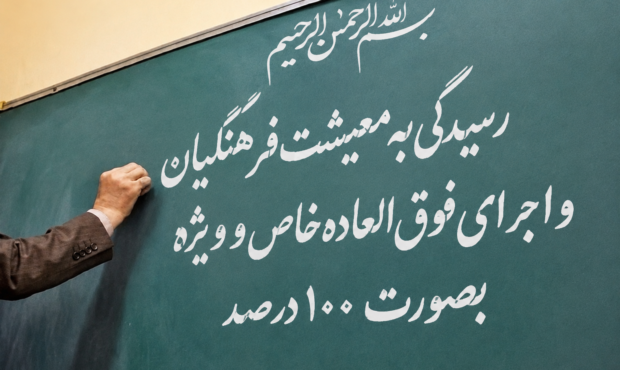 بسم الله الرحمن الرحیم
رسیدگی به معیشت فرهنگیان
و اجرای فوق العاده خاص و ویژه
بصورت ۱۰۰ درصد